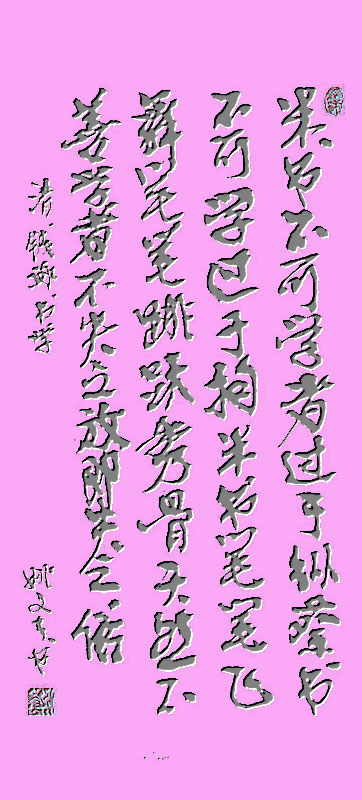 米书不可学者过于纵蔡书
不可学过于拘米书笔笔飞
舞笔笔跳跃秀骨天然不
善学者不失之放即失之俗
清钱泳书学
姚文书